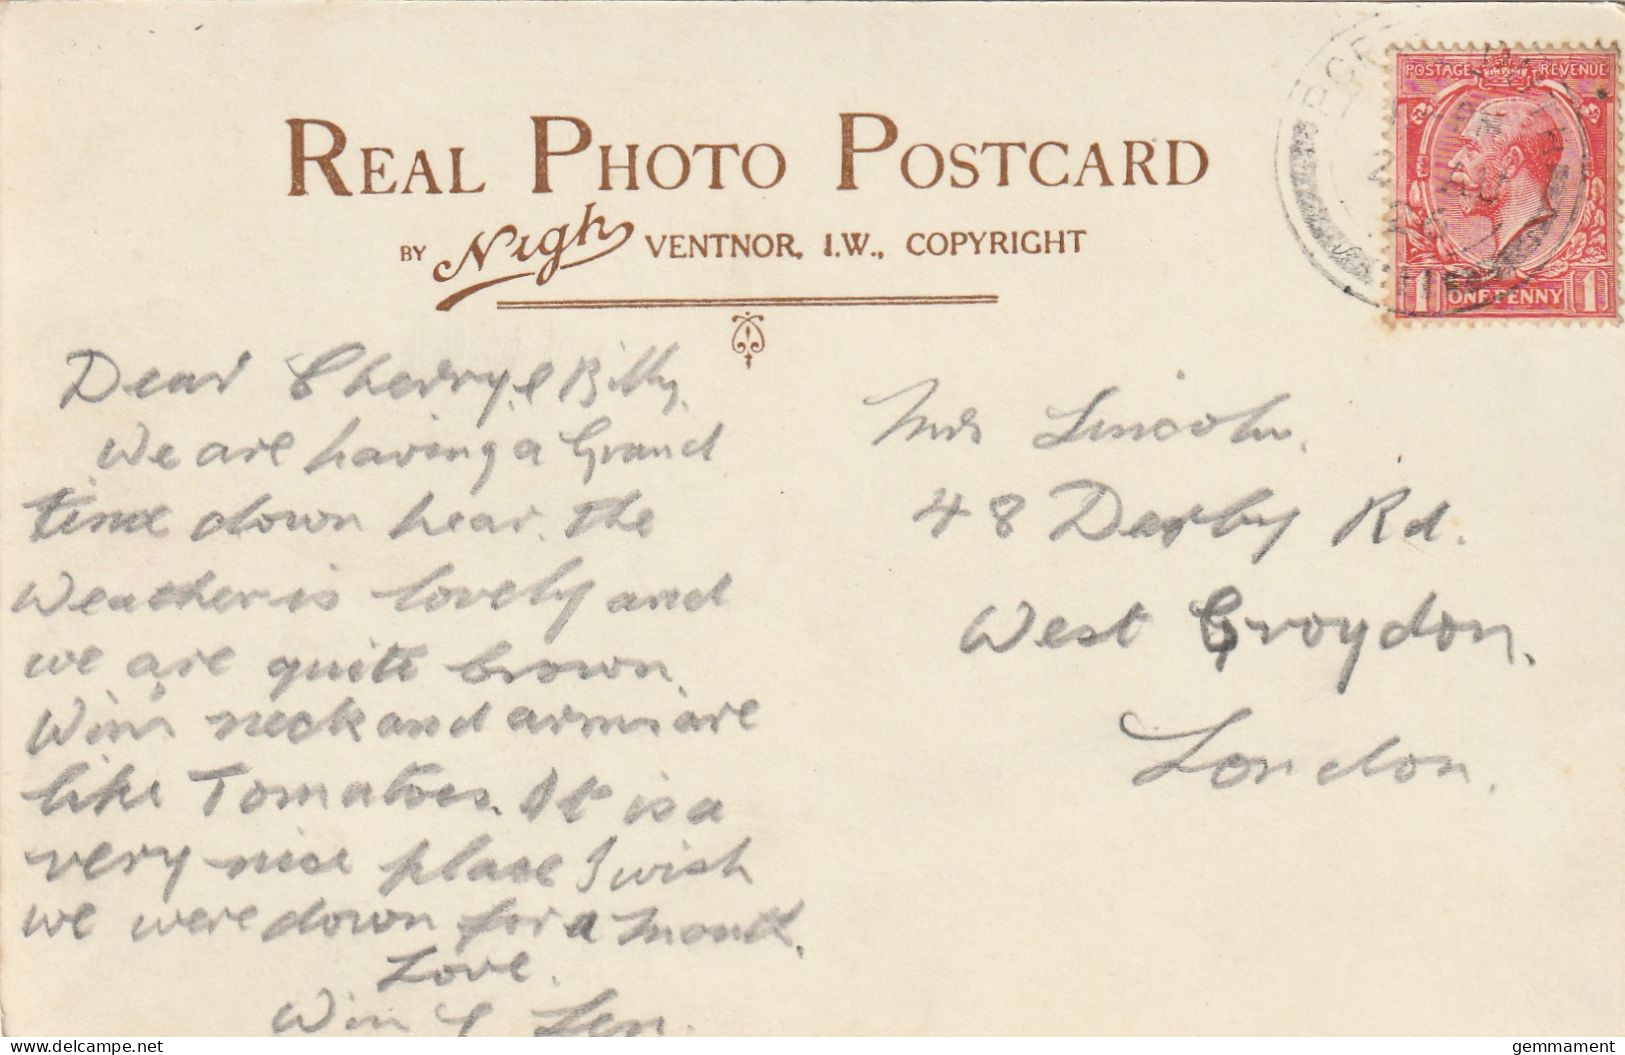 REAL PHOTO POSTCARD
BY Nigh VENTNOR, I.W., COPYRIGHT
POSTAGE REVENUE
1 ONE PENNY 1
Dear Cherry & Billy.
We are having a Grand
time down hear. the
Weather is lovely and
we are quite brown.
Win's neck and arms are
like Tomatoes. It is a
very nice place I wish
we were down for a month.
Love.
Win & Len.
Mrs Lincoln.
48 Derby Rd.
West Croydon.
London.
delcampe.net
gemmament